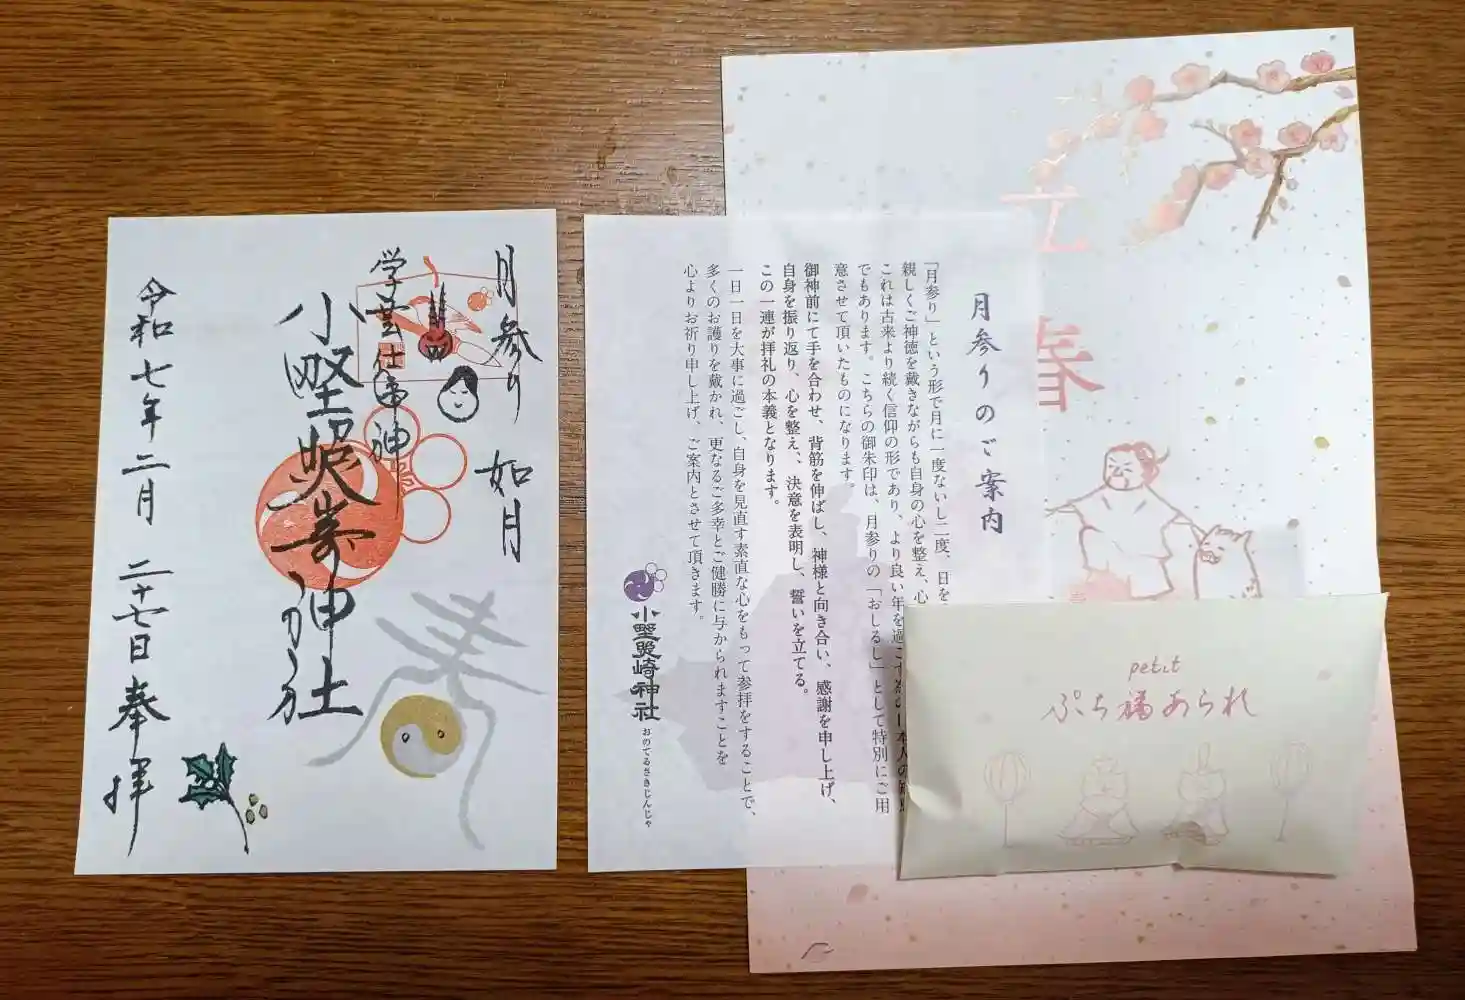 月参り 如月
学芸仕事神
小野照崎神社
令和七年二月 二十七日 奉拝
春
月参りのご案内
「月参り」という形で月に一度ないし二度、日を
親しくご神徳を戴きながらも自身の心を整え、心
これは古来より続く信仰の形であり、より良い年を過ごす為の日本人の
でもあります。こちらの御朱印は、月参りの「おしるし」として特別にご用
意させて頂いたものになります。
御神前にて手を合わせ、背筋を伸ばし、神様と向き合い、感謝を申し上げ、
自身を振り返り、心を整え、決意を表明し、誓いを立てる。
この一連が拝礼の本義となります。
一日一日を大事に過ごし、自身を見直す素直な心をもって参拝をすることで、
多くのお護りを戴かれ、更なるご多幸とご健勝に与かられますことを
心よりお祈り申し上げ、ご案内とさせて頂きます。
小野照崎神社
おのてるさきじんじゃ
立春
petit
ぷち福あられ